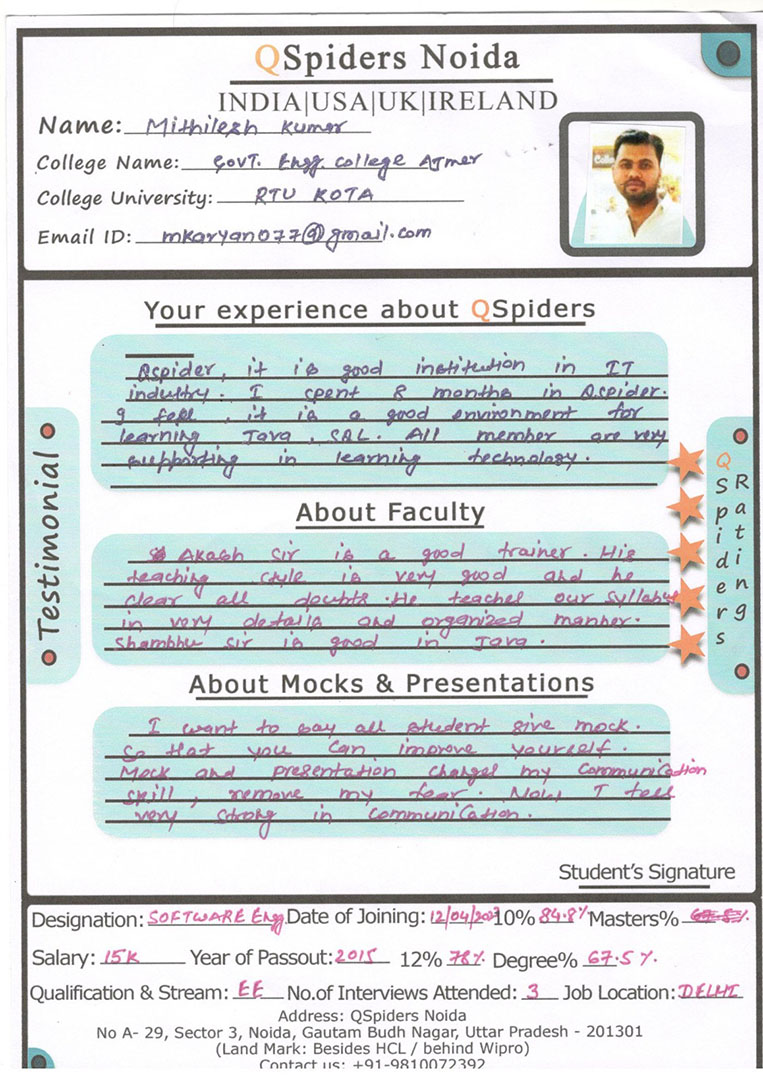 QSpiders Noida
INDIA|USA|UK|IRELAND
Name: Mithilesh Kumar
College Name: Govt. Engg. College Ajmer
College University: RTU KOTA
Email ID: mkaryan077@gmail.com
Your experience about QSpiders
Qspider, it is good institution in IT
industry. I spent 8 months in Q.spider.
I feel, it is a good environment for
learning Java, SQL. All member are very
supporting in learning technology.
Testimonial
QSpiders
Ratings
About Faculty
Akash Sir is a good trainer. His
teaching style is very good and he
clear all doubts. He teaches our syllabus
in very details and organized manner.
Shambhu sir is good in Java.
About Mocks & Presentations
I want to say all student give mock.
So that you can improve yourself.
Mock and presentation changes my communication
skill, remove my fear. Now, I feel
very strong in communication.
Student's Signature
Designation: SOFTWARE Engg Date of Joining: 12/04/2023 10% 84.8% Masters% 67.5%
Salary: 15K Year of Passout: 2015 12% 78% Degree% 67.5%
Qualification & Stream: EE No.of Interviews Attended: 3 Job Location: DELHI
Address: QSpiders Noida
No A- 29, Sector 3, Noida, Gautam Budh Nagar, Uttar Pradesh - 201301
(Land Mark: Besides HCL / behind Wipro)
Contact us: +91-9810072392